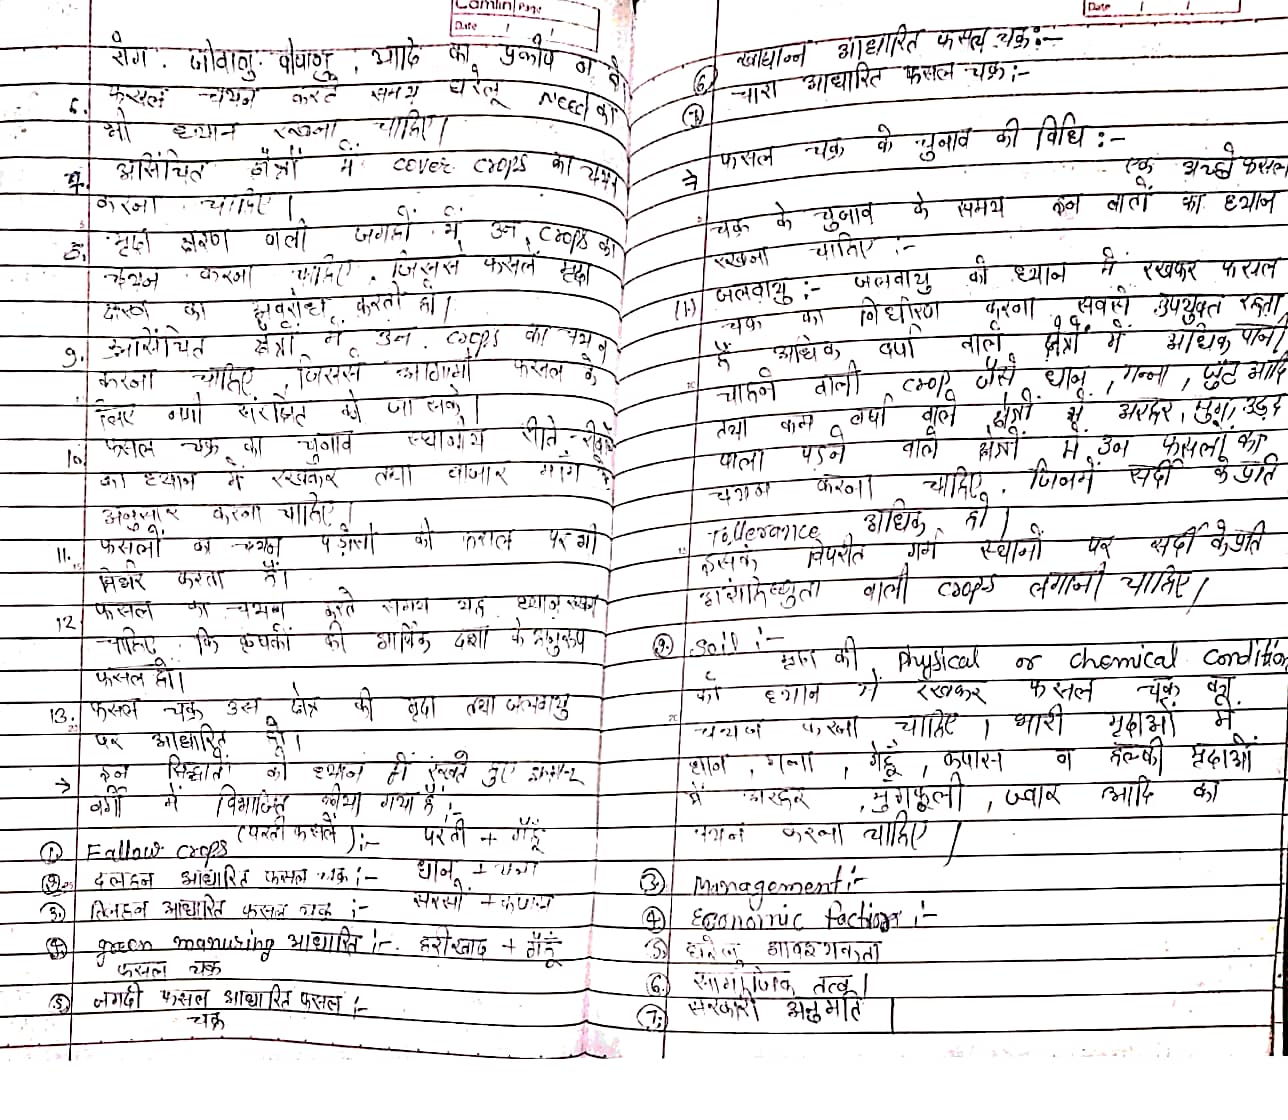 Camlin Page
Date / /
रोग, जीवाणु, आदि का प्रकोप न हो
6. फसल चयन करते समय घरेलू Need का
भी ध्यान रखना चाहिए।
7. असिंचित क्षेत्रों में cover crops का चयन
करना चाहिए।
8. मृदा क्षरण वाली जगहों में उन crops का
चयन करना चाहिए, जिससे फसलें मृदा
क्षरण का अवरोध करती हो।
9. असिंचित क्षेत्रों में उन crops का चयन
करना चाहिए, जिससे आगामी फसल के
लिए नमी संरक्षित की जा सके।
10. फसल चक्र का चुनाव स्थानीय रीति-रिवाज
का ध्यान में रखकर तथा बाजार मांग के
अनुसार करना चाहिए।
11. फसलों का चयन पड़ोसी की फसल पर भी
निर्भर करता है।
12. फसल का चयन करते समय यह ध्यान रखना
चाहिए कि कृषकों की आर्थिक दशा के अनुरूप
फसल हो।
13. फसल चक्र उस क्षेत्र की मृदा तथा जलवायु
पर आधारित हो।
→ इन सिद्धांतों को ध्यान में रखते हुए
वर्गों में विभाजित किया गया है:-
① Fallow crops (परती फसलें):- परती + गेहूँ
② दलहन आधारित फसल चक्र:- धान + चना
③ तिलहन आधारित फसल चक्र:- सरसों + कपास
④ green manuring आधारित:- हरी खाद + गेहूँ
फसल चक्र
⑤ नगदी फसल आधारित फसल:-
चक्र
Date / /
⑥ खाद्यान्न आधारित फसल चक्र:-
⑦ चारा आधारित फसल चक्र:-
→ फसल चक्र के चुनाव की विधि:-
एक अच्छे फसल
चक्र के चुनाव के समय इन बातों का ध्यान
रखना चाहिए:-
(1.) जलवायु:- जलवायु को ध्यान में रखकर फसल
चक्र का निर्धारण करना सबसे उपयुक्त रहता
है अधिक वर्षा वाले क्षेत्रों में अधिक पानी
चाहने वाली crop जैसे धान, गन्ना, जूट आदि
तथा कम वर्षा वाले क्षेत्रों में अरहर, मूग, उड़द
पाला पडने वाले क्षेत्रों में उन फसलों का
चयन करना चाहिए, जिनमें सर्दी के प्रति
Tollerance अधिक हो।
इसके विपरीत गर्म स्थानों पर सर्दी के प्रति
असहिष्णुता वाली crops लगानी चाहिए।
② Soil:-
मृदा की Physical or chemical condition
को ध्यान में रखकर फसल चक्र का
चयन करना चाहिए। भारी मृदाओं में
धान, गन्ना, गेहूँ, कपास व हल्की मृदाओं
में अरहर, मुंगफूली, ज्वार आदि का
चयन करना चाहिए।
③ Management:-
④ Economic factior:-
⑤ घरेलू आवश्यकता
⑥ सामाजिक तत्व।
⑦ सरकारी अनुमति।